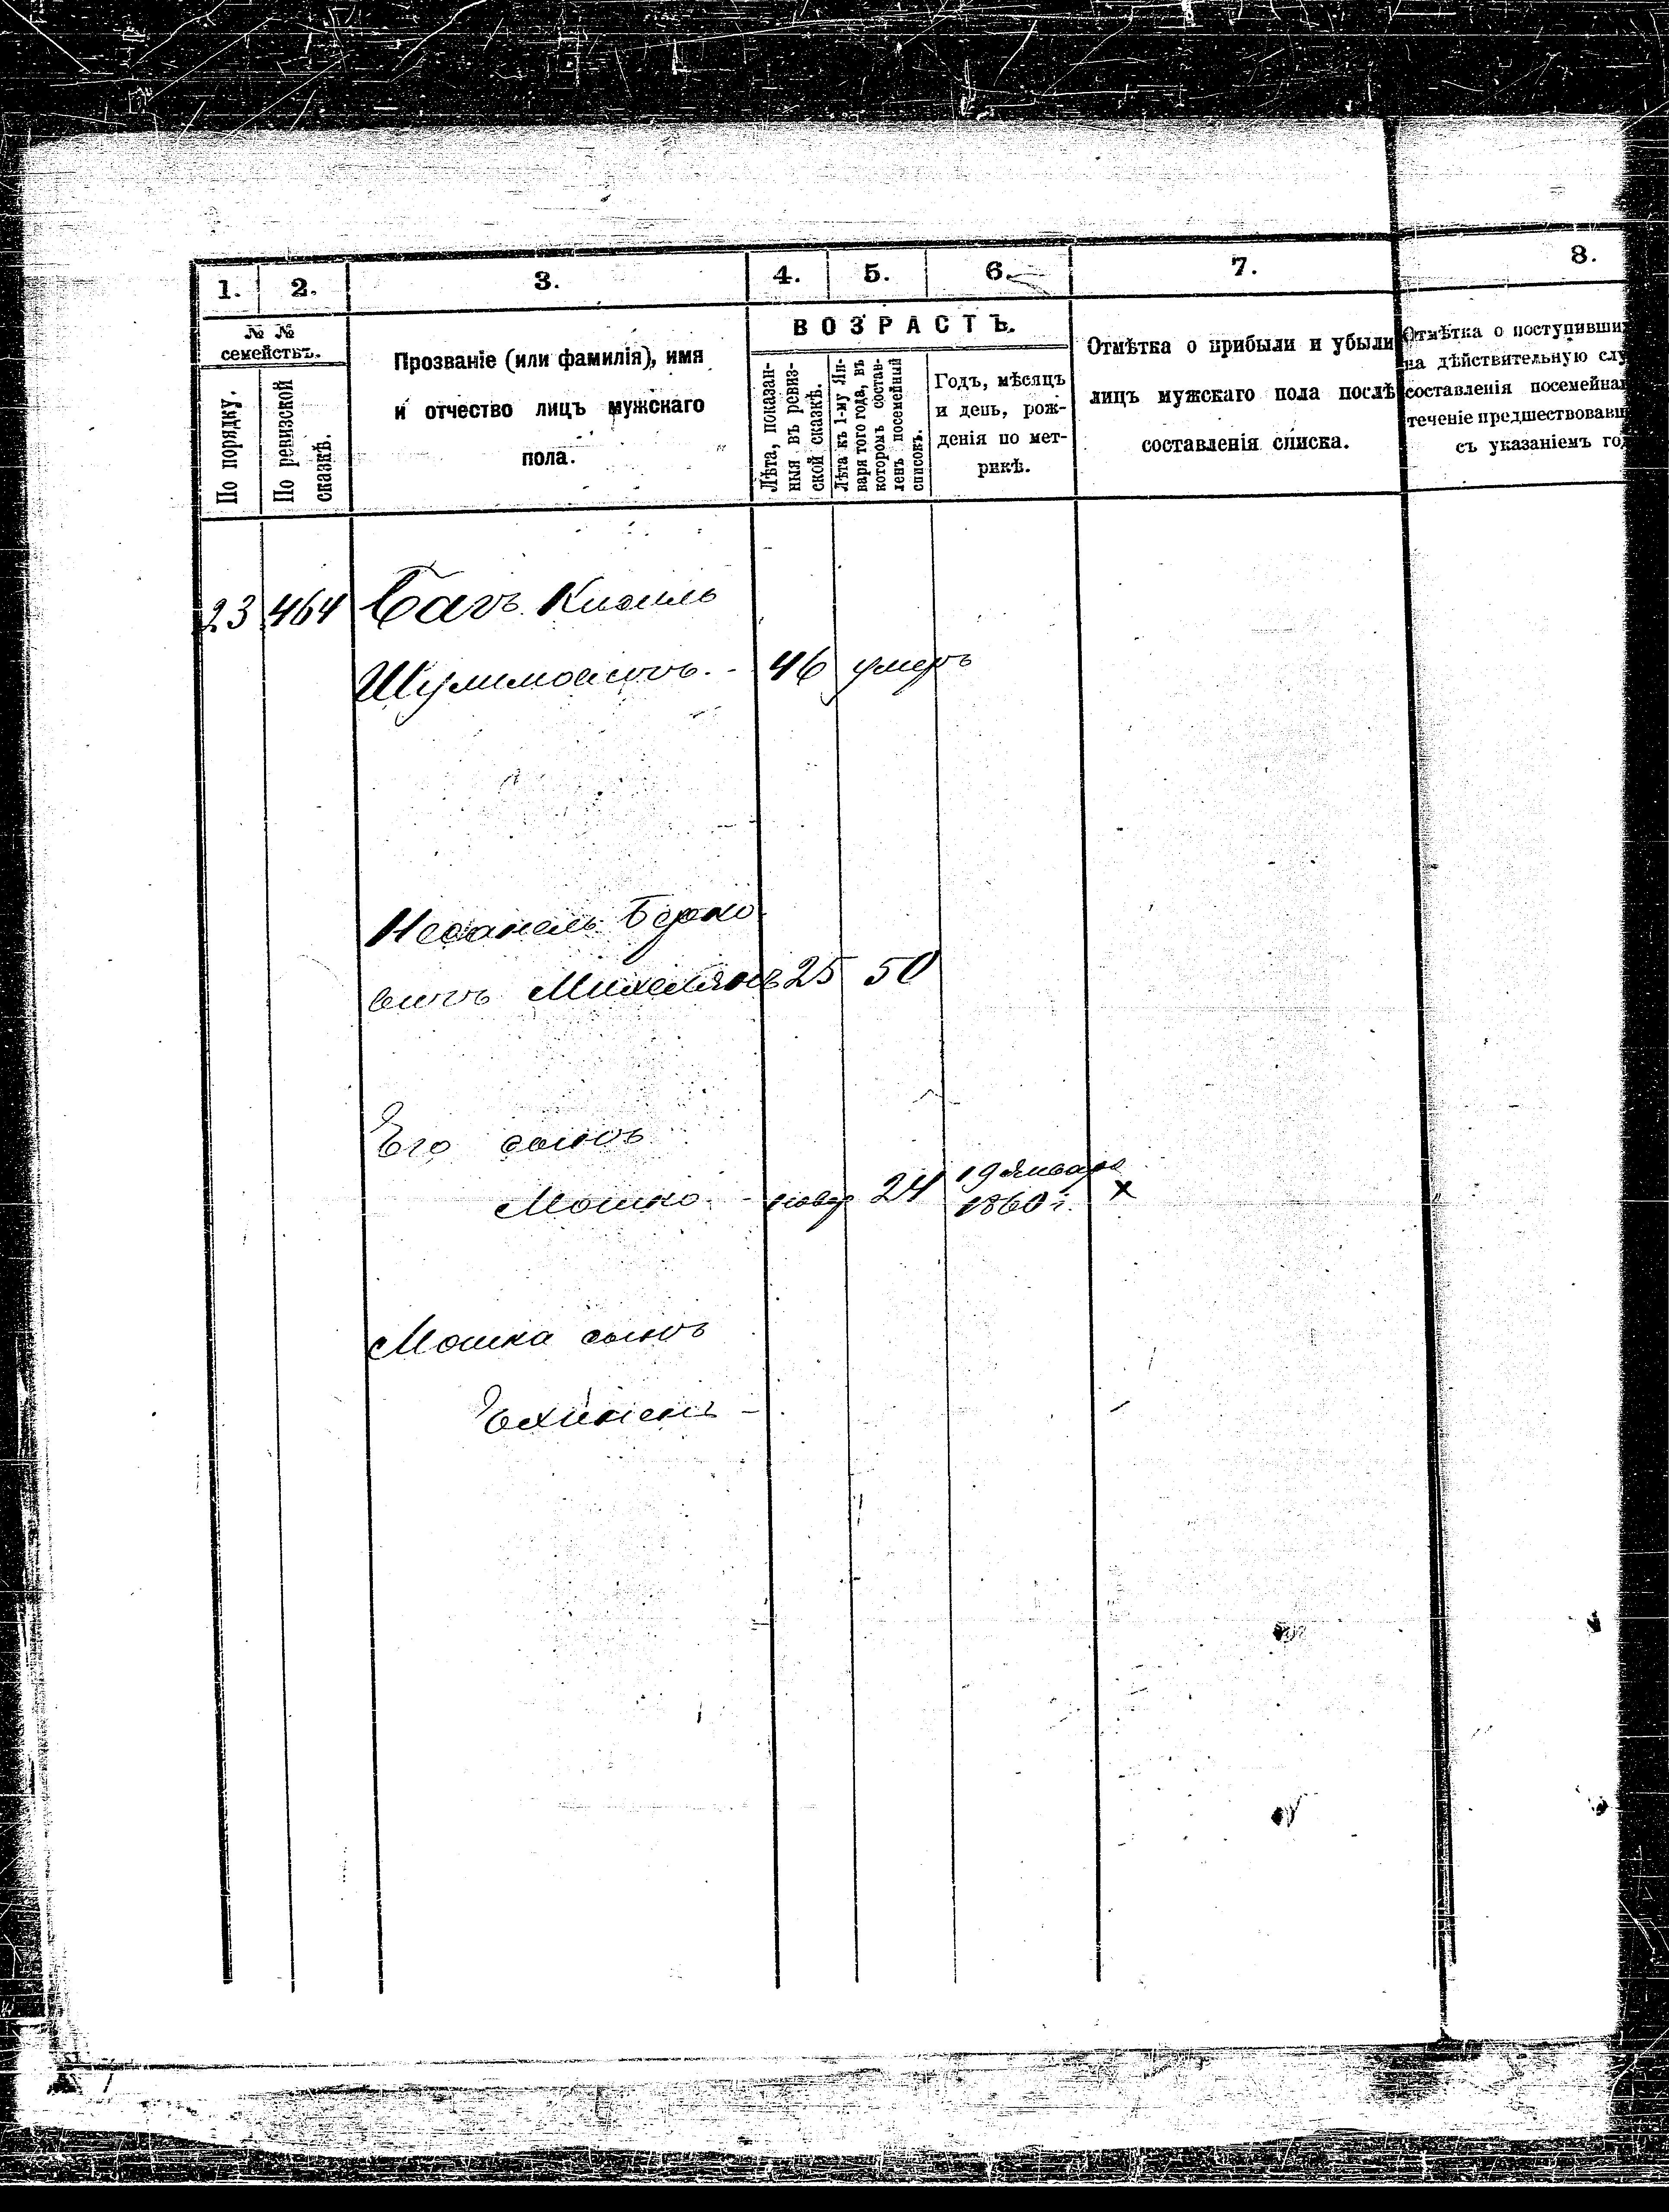 1. 2. 3. 4. 5. 6. 7. 8.
№ №
семействъ.
По порядку.
По ревизской
сказкѣ.
Прозваніе (или фамилія), имя
и отчество лицъ мужскаго
пола.
ВОЗРАСТЪ.
Лѣта, показан-
ныя въ ревиз-
ской сказкѣ.
Лѣта къ 1-му Ян-
варя того года, въ
которомъ состав-
ленъ посемейный
списокъ.
Годъ, мѣсяцъ
и день, рож-
денія по мет-
рикѣ.
Отмѣтка о прибыли и убыли
лицъ мужскаго пола послѣ
составленія списка.
Отмѣтка о поступивши
на дѣйствительную слу
составленія посемейна
теченіе предшествовавш
съ указаніемъ го
23 464
46 умеръ
Берко
вичъ 25 50
Его сынъ
Мошко - 24 19 Января
1860 г. х
Мошка сынъ